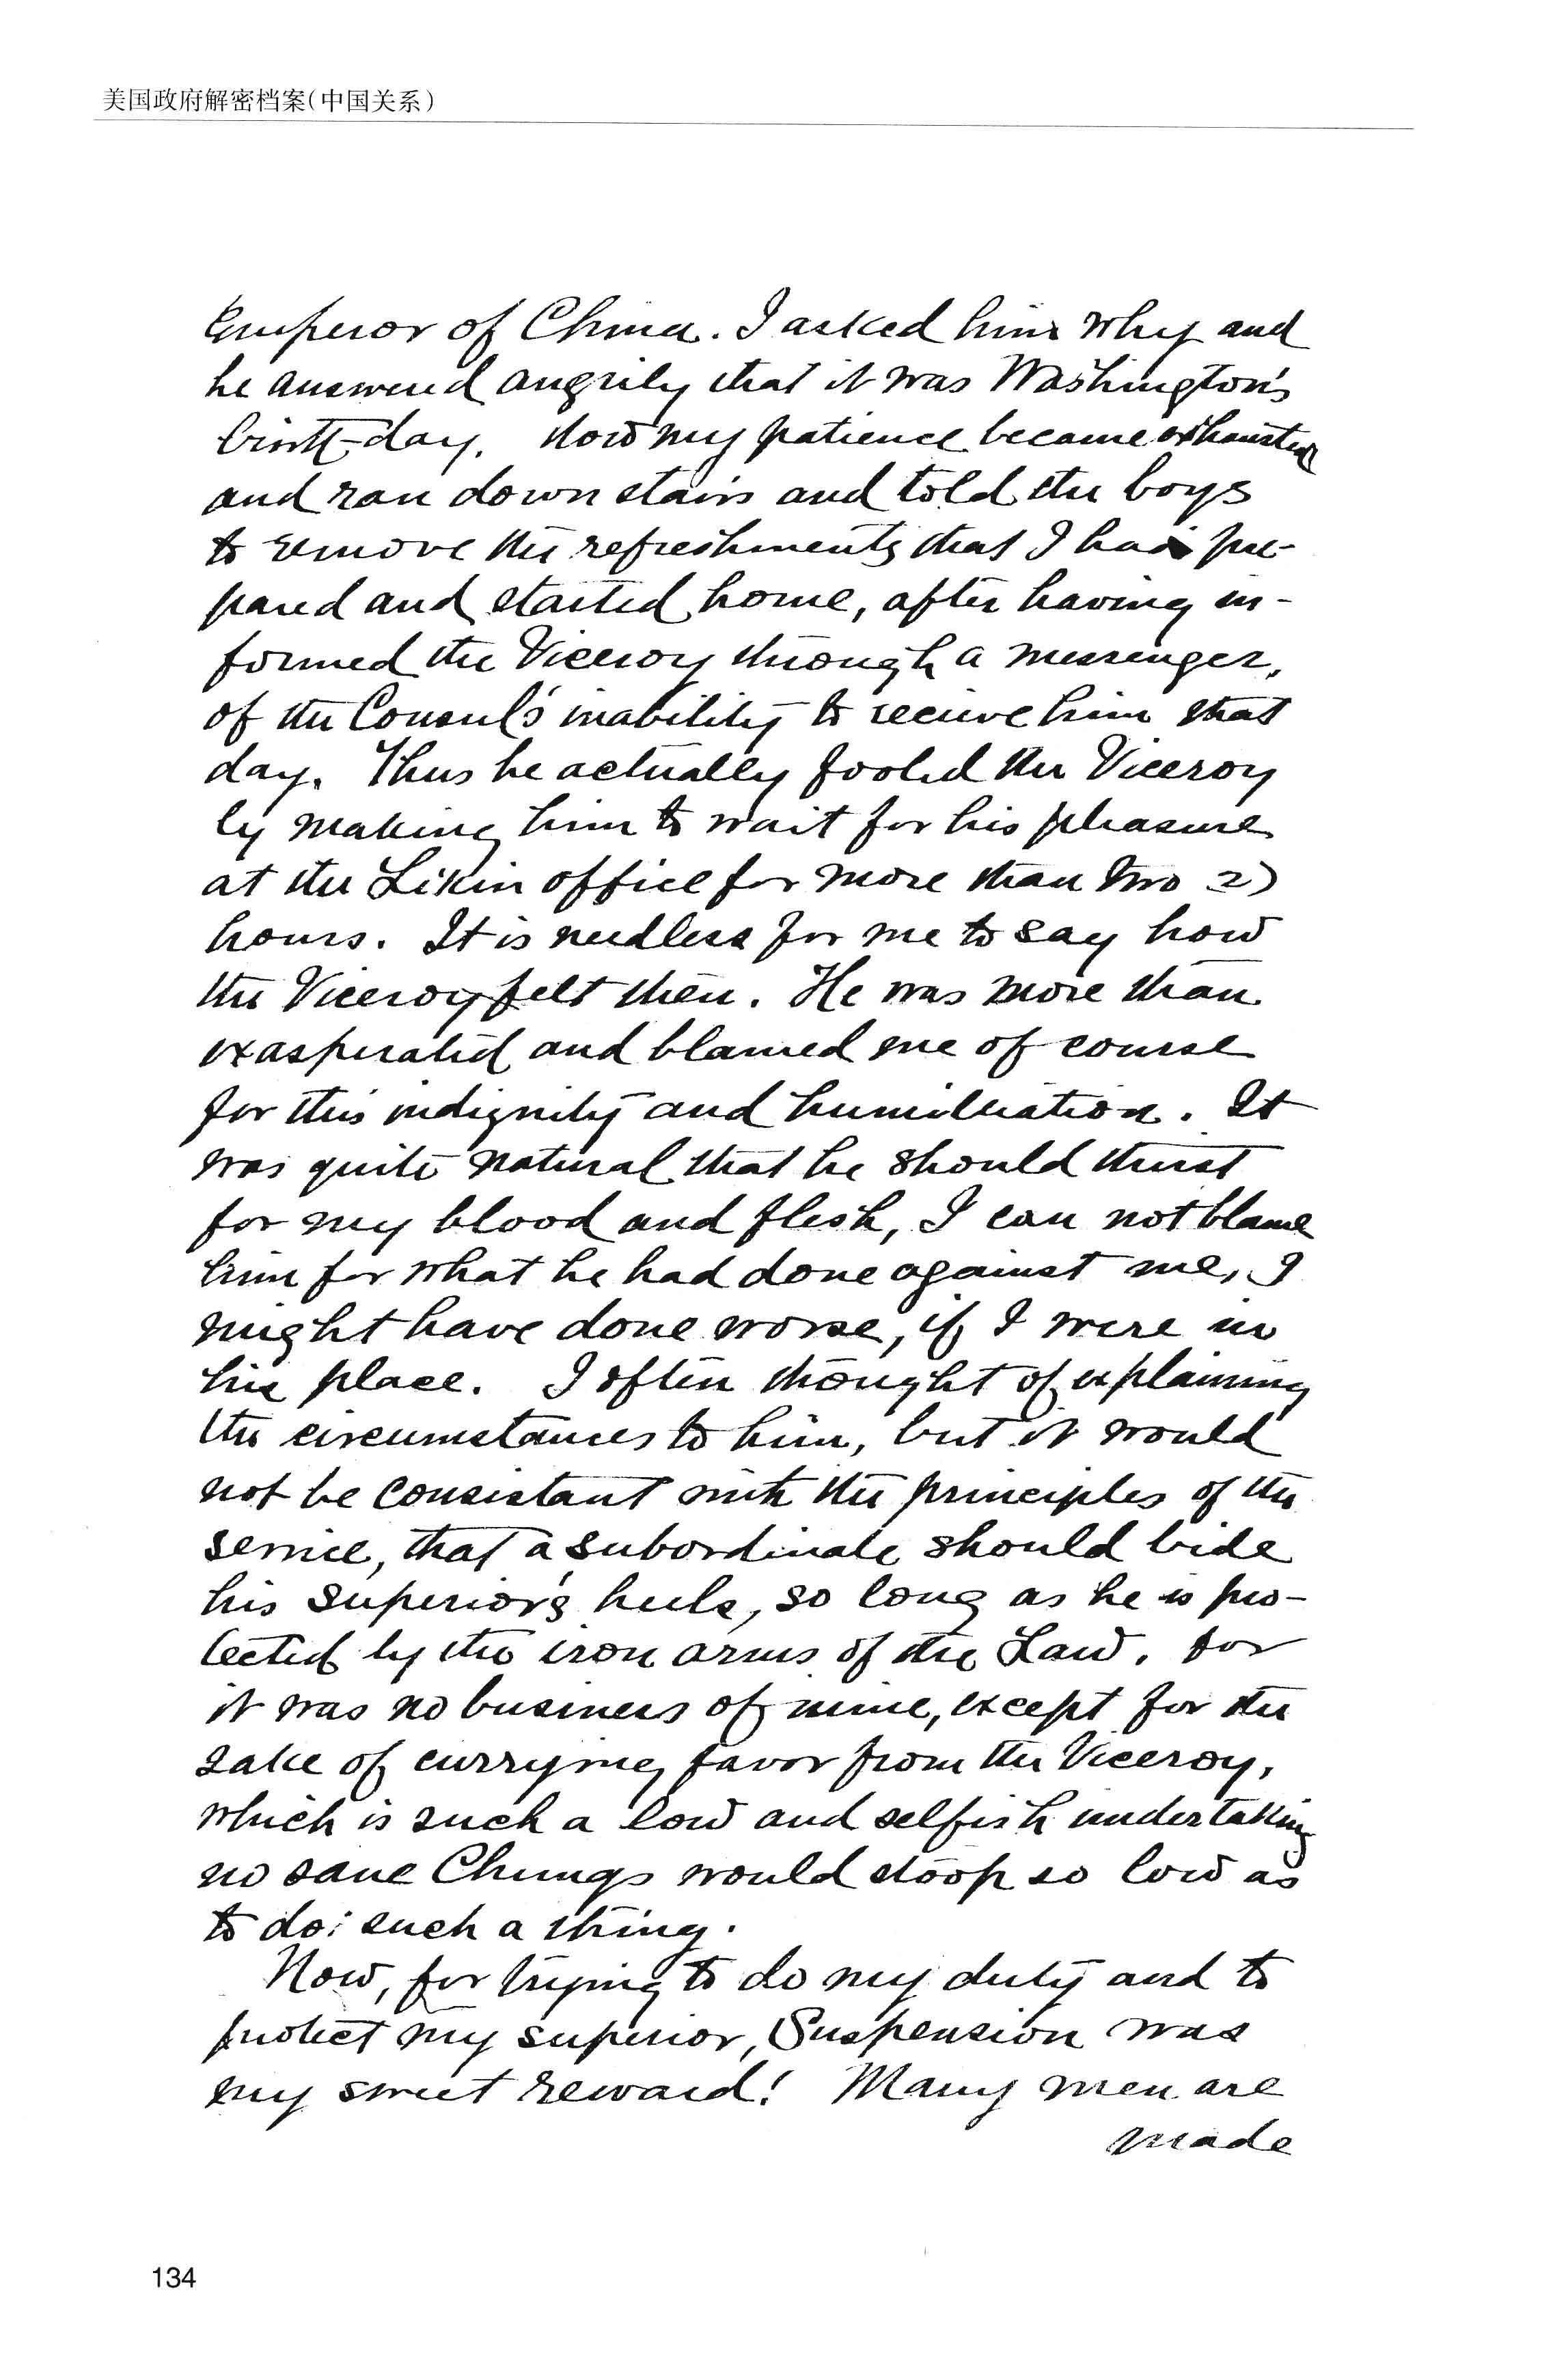 美国政府解密档案(中国关系)
Emperor of China. I asked him why and
he answered angrily that it was Washington's
birth-day. Now my patience became exhausted
and ran down stairs and told the boys
to remove the refreshments that I had pre-
pared and started home, after having in-
formed the Viceroy through a messenger,
of the Consul's inability to receive him that
day. Thus he actually fooled the Viceroy
by making him to wait for his pleasure
at the Likin office for more than two 2)
hours. It is needless for me to say how
the Viceroy felt then. He was more than
exasperated and blamed me of course
for this indignity and humiliation. It
was quite natural that he should thirst
for my blood and flesh, I can not blame
him for what he had done against me, I
might have done worse, if I were in
his place. I often thought of explaining
the circumstances to him, but it would
not be consistant with the principles of the
service, that a subordinate should bide
his superior's heels, so long as he is pro-
tected by the iron arms of the Law, for
it was no business of mine, except for the
sake of currying favor from the Viceroy,
which is such a low and selfish undertaking
no sane Chungs would stoop so low as
to do such a thing.
Now, for trying to do my duty and to
protect my superior, Suspension was
my sweet reward! Many men are
made
134